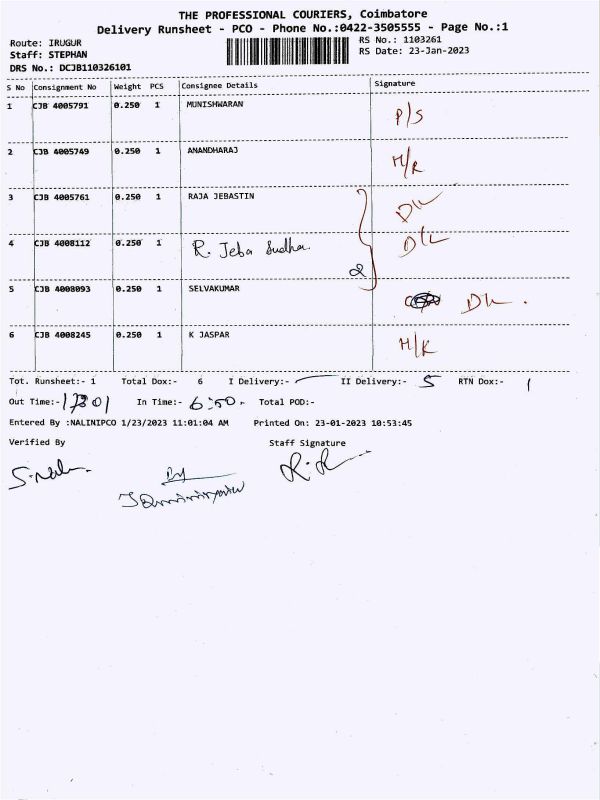 THE PROFESSIONAL COURIERS, Coimbatore
Delivery Runsheet - PCO - Phone No.:0422-3505555 - Page No.:1
Route: IRUGUR RS No.: 1103261
Staff: STEPHAN RS Date: 23-Jan-2023
DRS No.: DCJB110326101
S No Consignment No Weight PCS Consignee Details Signature
1 CJB 4005791 0.250 1 MUNISHWARAN P/S
2 CJB 4005749 0.250 1 ANANDHARAJ M/R
3 CJB 4005761 0.250 1 RAJA JEBASTIN D/L
4 CJB 4008112 0.250 1 R. Jeba Sudha. D/L
5 CJB 4008093 0.250 1 SELVAKUMAR D/L.
6 CJB 4008245 0.250 1 K JASPAR M/K
Tot. Runsheet:- 1 Total Dox:- 6 I Delivery:- II Delivery:- 5 RTN Dox:- 1
Out Time:- In Time:- 6:50. Total POD:-
Entered By :NALINIPCO 1/23/2023 11:01:04 AM Printed On: 23-01-2023 10:53:45
Verified By Staff Signature